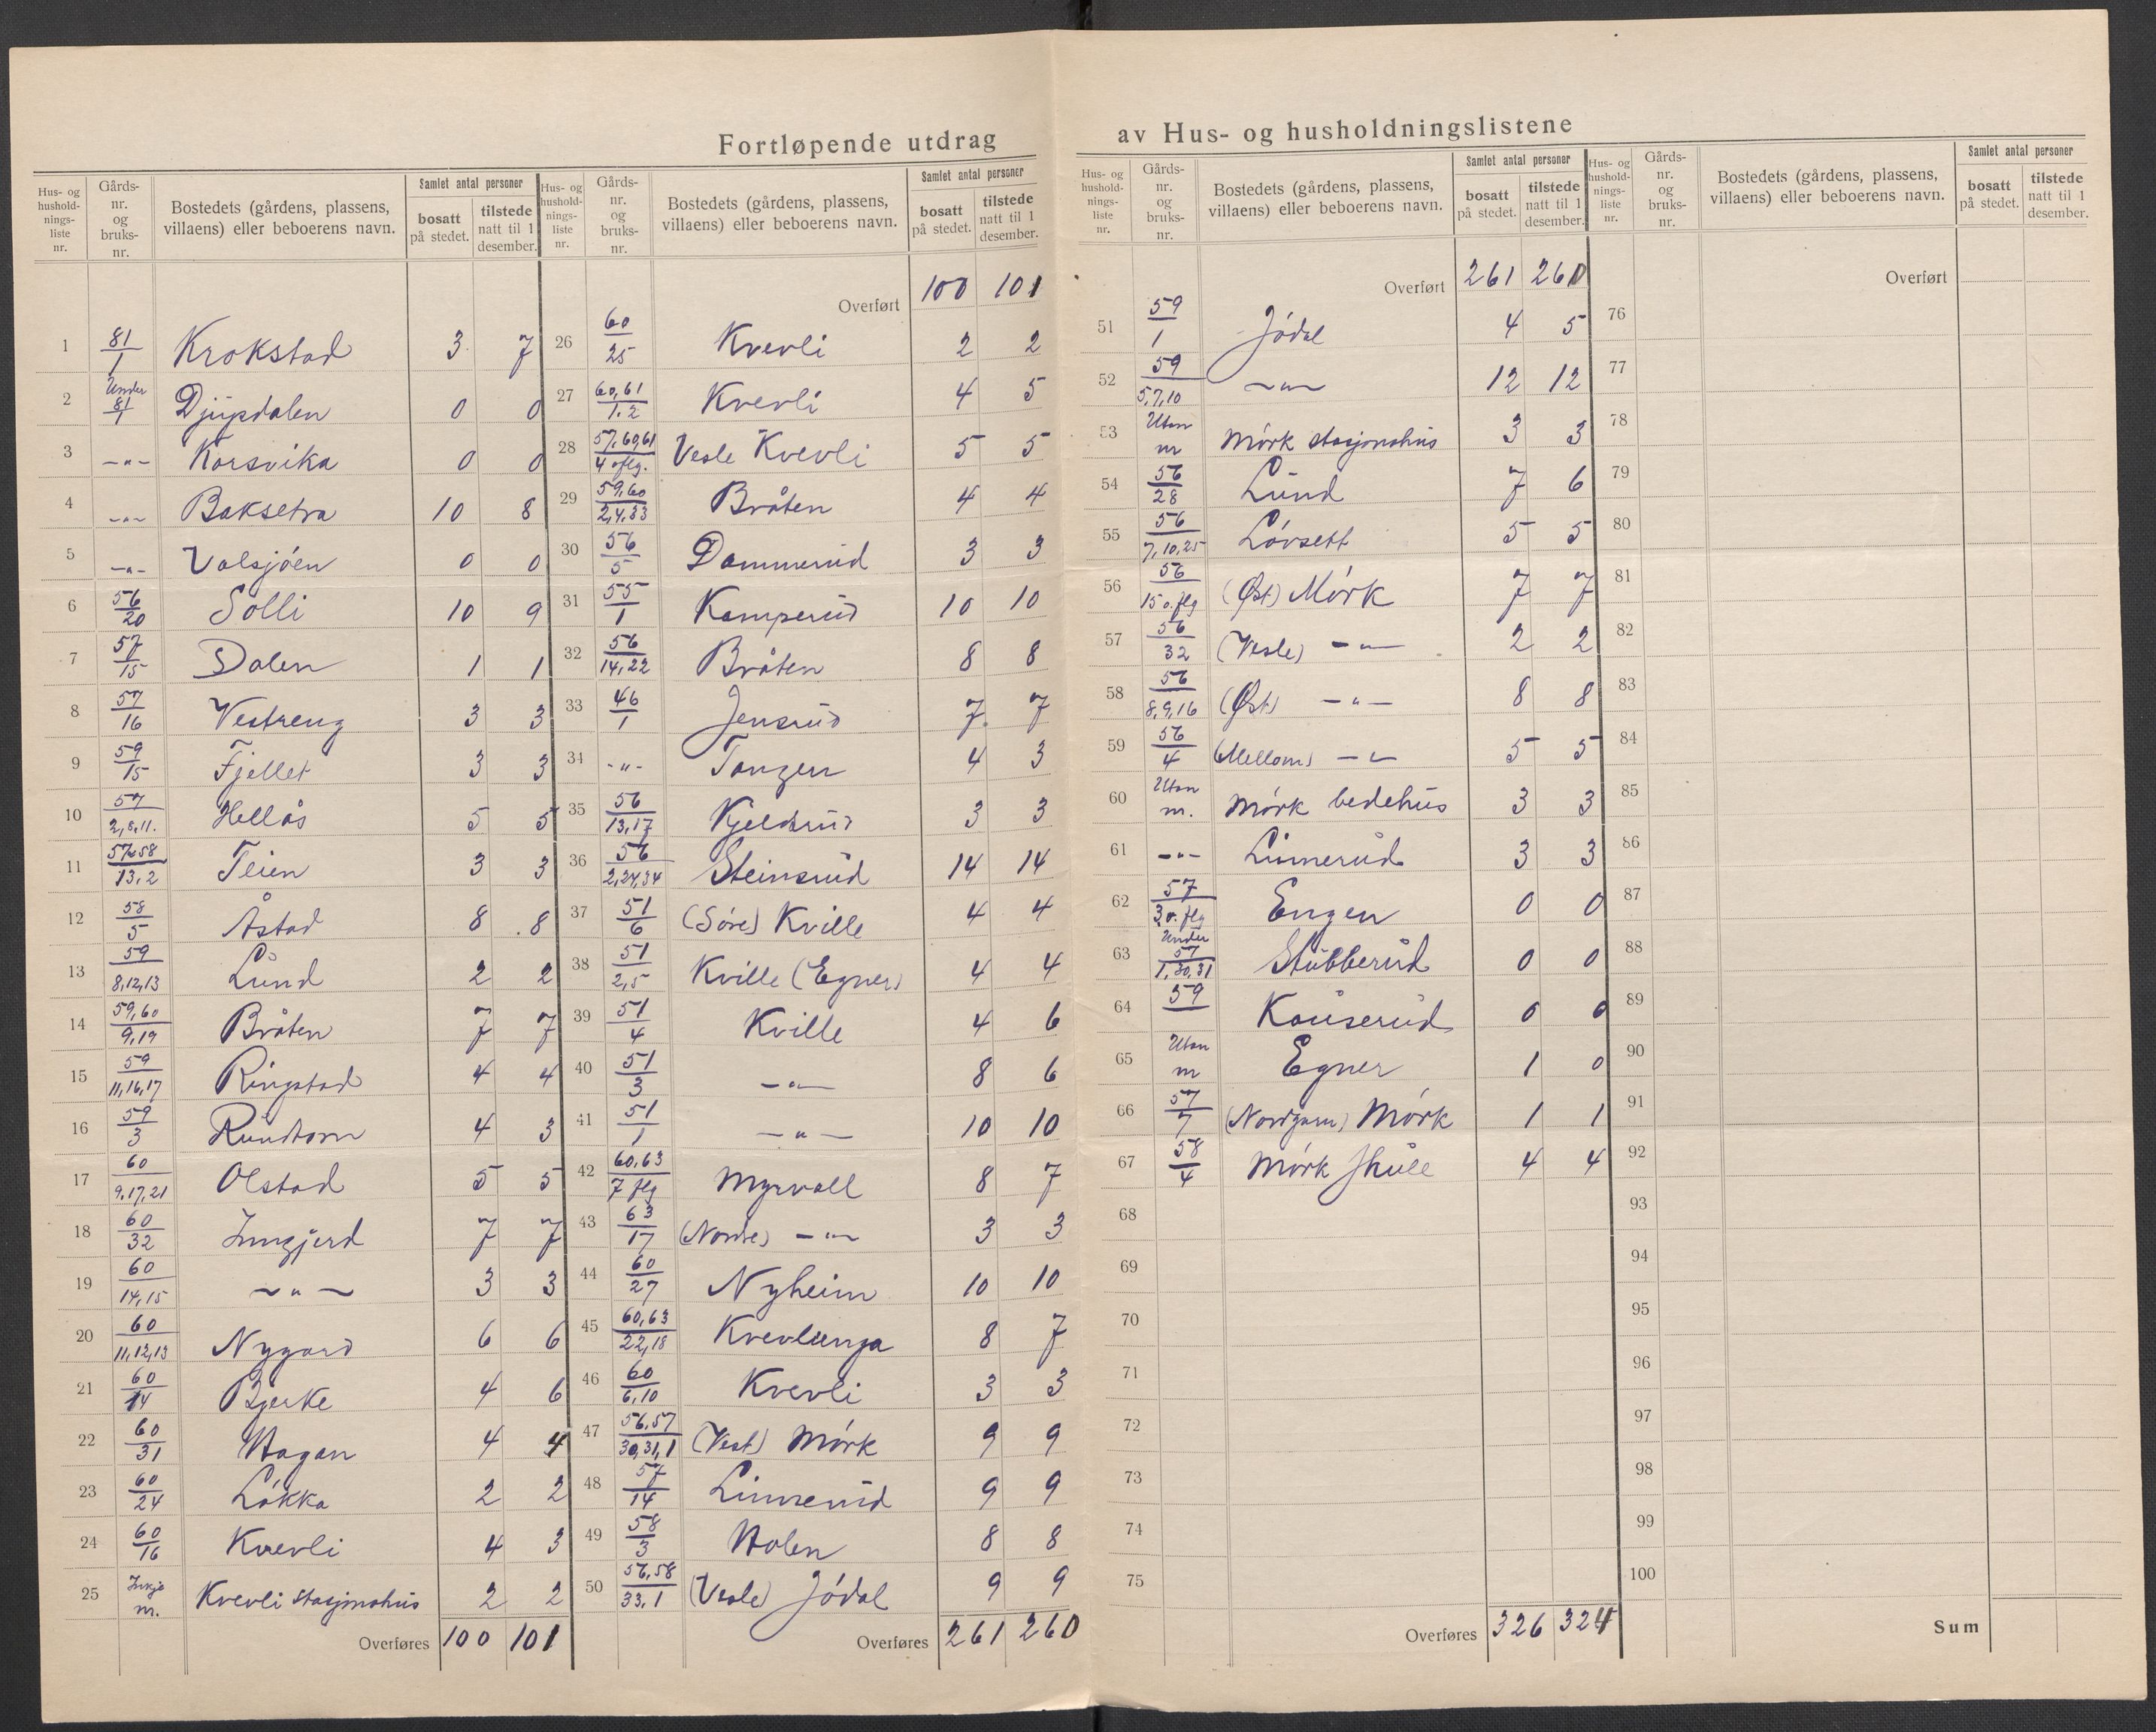 Fortløpende utdrag av Hus- og husholdningslistene
Hus- og husholdningsliste nr. | Gårds-nr. og bruks-nr. | Bostedets (gårdens, plassens, villaens) eller beboerens navn. | Samlet antal personer | bosatt på stedet. | tilstede natt til 1 desember.
1 81/1 Krokstad 3 7
2 Under 81/1 Djupdalen 0 0
3 -"- Korsvika 0 0
4 -"- Baksetra 10 8
5 -"- Valsjöen 0 0
6 56/20 Solli 10 9
7 57/15 Dalen 1 1
8 57/16 Vestreng 3 3
9 59/15 Fjellet 3 3
10 57/2,8,11. Hellås 5 5
11 57&58/13,2 Teien 3 3
12 58/5 Åstad 8 8
13 59/8,12,13 Lund 2 2
14 59,60/9,19 Bråten 7 7
15 59/11,16,17 Ringstad 4 4
16 59/3 Rundtom 4 3
17 60/9,17,21 Olstad 5 5
18 60/32 7 7
19 60/14,15 -"- 3 3
20 60/11,12,13 Nygard 6 6
21 60/14 Bjerke 4 6
22 60/31 Hagan 4 4
23 60/24 Lökka 2 2
24 60/16 Kvevli 4 3
25 Inkje m. Kvevli stasjonshus 2 2
Overføres 100 101
Hus- og husholdningsliste nr. | Gårds-nr. og bruks-nr. | Bostedets (gårdens, plassens, villaens) eller beboerens navn. | Samlet antal personer | bosatt på stedet. | tilstede natt til 1 desember.
Overført 100 101
26 60/25 Kvevli 2 2
27 60,61/1.2 Kvevli 4 5
28 57,60,61/4 oflg. Vesle Kvevli 5 5
29 59,60/2,4,33 Bråten 4 4
30 56/5 Dammerud 3 3
31 55/1 Kamperud 10 10
32 56/14,22 Bråten 8 8
33 46/1 Jensrud 7 7
34 -"- Tangen 4 3
35 56/13,17 Kjeldsrud 3 3
36 56/2,24,34 Steinsrud 14 14
37 51/6 (Söre) Kville 4 4
38 51/2,5 Kville (Egner) 4 4
39 51/4 Kville 4 6
40 51/3 -"- 8 6
41 51/1 -"- 10 10
42 60,63/7 flg Myrvoll 8 7
43 63/17 (Nordre) -"- 3 3
44 60/27 Nyheim 10 10
45 60,63/22,18 Kvevlienga 8 7
46 60/6,10 Kvevli 3 3
47 56,57/30,31,1 (Vest) Mörk 9 9
48 57/14 Linnerud 9 9
49 58/3 Holen 8 8
50 56,58/33,1 (Vesle) Jödal 9 9
Overføres 261 260
Hus- og husholdningsliste nr. | Gårds-nr. og bruks-nr. | Bostedets (gårdens, plassens, villaens) eller beboerens navn. | Samlet antal personer | bosatt på stedet. | tilstede natt til 1 desember.
Overført 261 260
51 59/1 Jödal 4 5
52 59/5,7,10 -"- 12 12
53 Utan m Mörk stasjonshus 3 3
54 56/28 Lund 7 6
55 56/7,10,25 Lövsett 5 5
56 56/15 o.flg (Øst) Mörk 7 7
57 56/32 (Vesle) -"- 2 2
58 56/8,9,16 (Øst) -"- 8 8
59 56/4 (Mellom) -"- 5 5
60 Utan m. Mörk bedehus 3 3
61 -"- Linnerud 3 3
62 57/3 o. flg Engen 0 0
63 Under 57/1,30,31 Stubberud 0 0
64 59 Kauserud 0 0
65 Utan m Egner 1 0
66 57/7 (Nordgarn) Mörk 1 1
67 58/4 Mörk skule 4 4
68
69
70
71
72
73
74
75
Overføres 326 324
Hus- og husholdningsliste nr. | Gårds-nr. og bruks-nr. | Bostedets (gårdens, plassens, villaens) eller beboerens navn. | Samlet antal personer | bosatt på stedet. | tilstede natt til 1 desember.
Overført
76
77
78
79
80
81
82
83
84
85
86
87
88
89
90
91
92
93
94
95
96
97
98
99
100
Sum